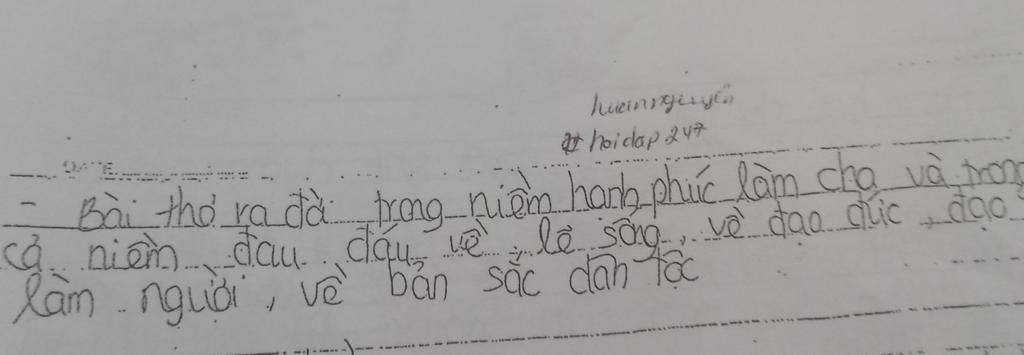 huennguyen
# hoidap247
DATE
- Bài thơ ra đời trong niềm hanh phúc làm cha và trong
cả niềm đau đáu về lẽ sống, về đạo đức, đạo
làm người, về bản sắc dân tộc